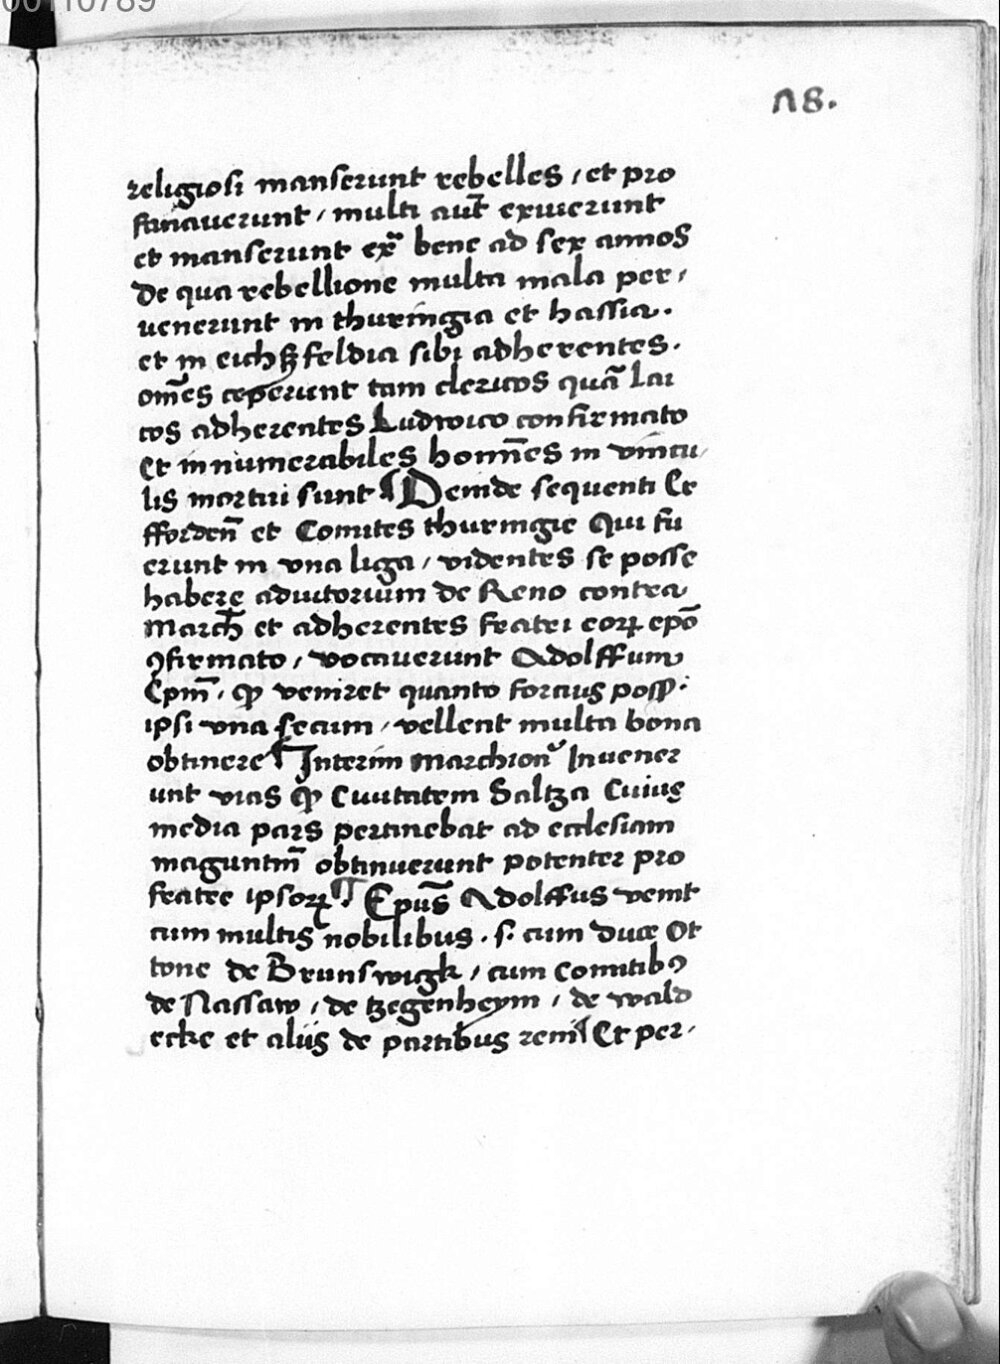 00110789
48.
religiosi manserunt rebelles / et pro
fanauerunt / multi aut̄ exiuerunt
et manserunt ex̄ᵃ bene ad sex annos
de qua rebellione multa mala per /
uenerunt in thuringia et hassia .
et in eichßfeldia sibi adherentes .
om̄es ceperunt tam clericos quā lai
cos adherentes Ludwico confirmato
Et innumerabiles homīes in vincu /
lis mortui sunt ¶ Deinde sequenti Er
ffordeñ et Comites thuringie Qui fu
erunt in vna liga / videntes se posse
habere adiutorium de Reno contra
March̄ et adherentes fratri eorꝝ ep̄o
ꝯfirmato / vocauerunt Adolffum
Ep̄m . ꝙ veniret quanto forcius poss̄ :
ipsi vna secum / vellent multa bona
obtinere ¶ Interim marchion̄ Inuener
unt vias ꝙ Ciuitatem Saltza Cuius
media pars pertinebat ad ecclesiam
maguntin̄ obtinuerunt potenter pro
fratre ipsorꝝ ¶ Ep̄us Adolffus venit
cum multis nobilibus . s . cum duce Ot
tone de Brunswigk / cum Comitibꝰ
de Nassaw / de tzegenheym / de wald
ecke et aliis de partibus reni ¶ Et per /